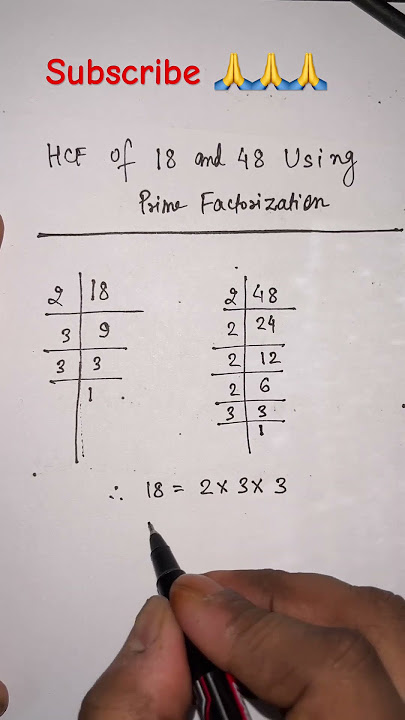 Subscribe 🙏🙏🙏
HCF of 18 and 48 Using
Prime Factorization
2 18
3 9
3 3
1
2 48
2 24
2 12
2 6
3 3
1
∴ 18 = 2 × 3 × 3